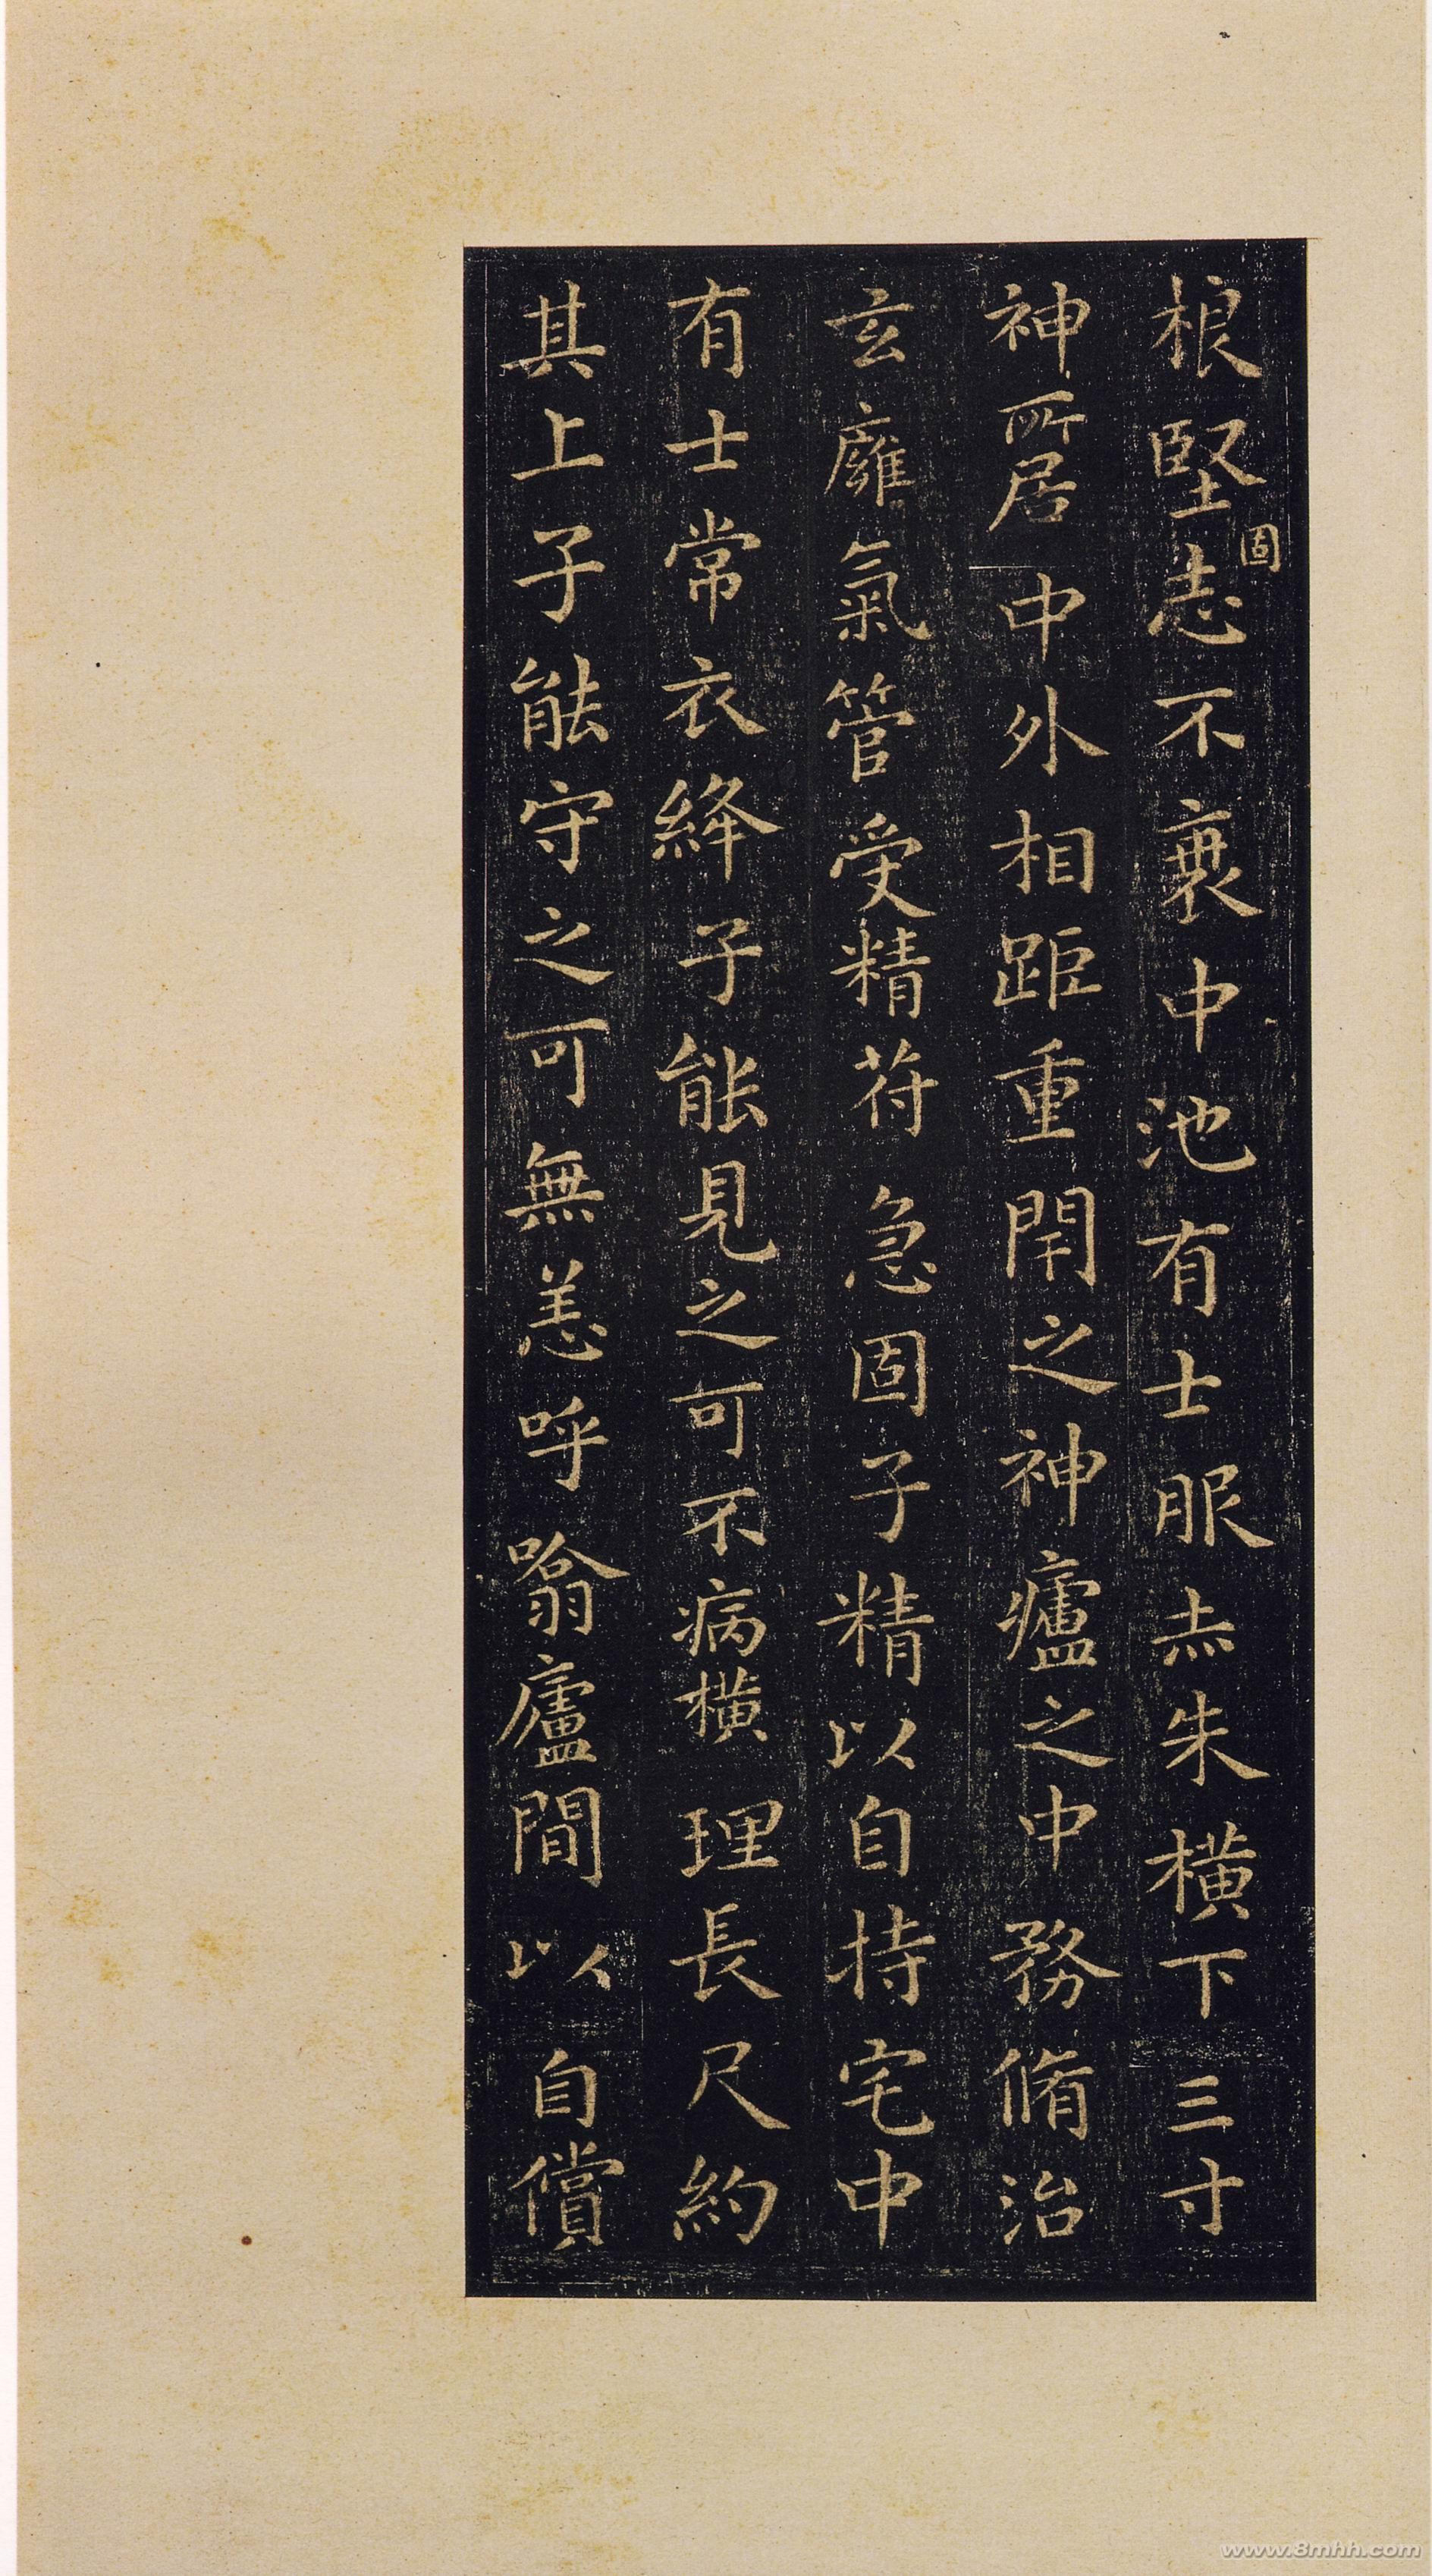 根堅固志不衰中池有士服赤朱橫下三寸
神所居中外相距重閇之神廬之中務脩治
玄廱氣管受精苻急固子精以自持宅中
有士常衣絳子能見之可不病橫理長尺約
其上子能守之可無恙呼噏廬間以自償
www.8mhh.com